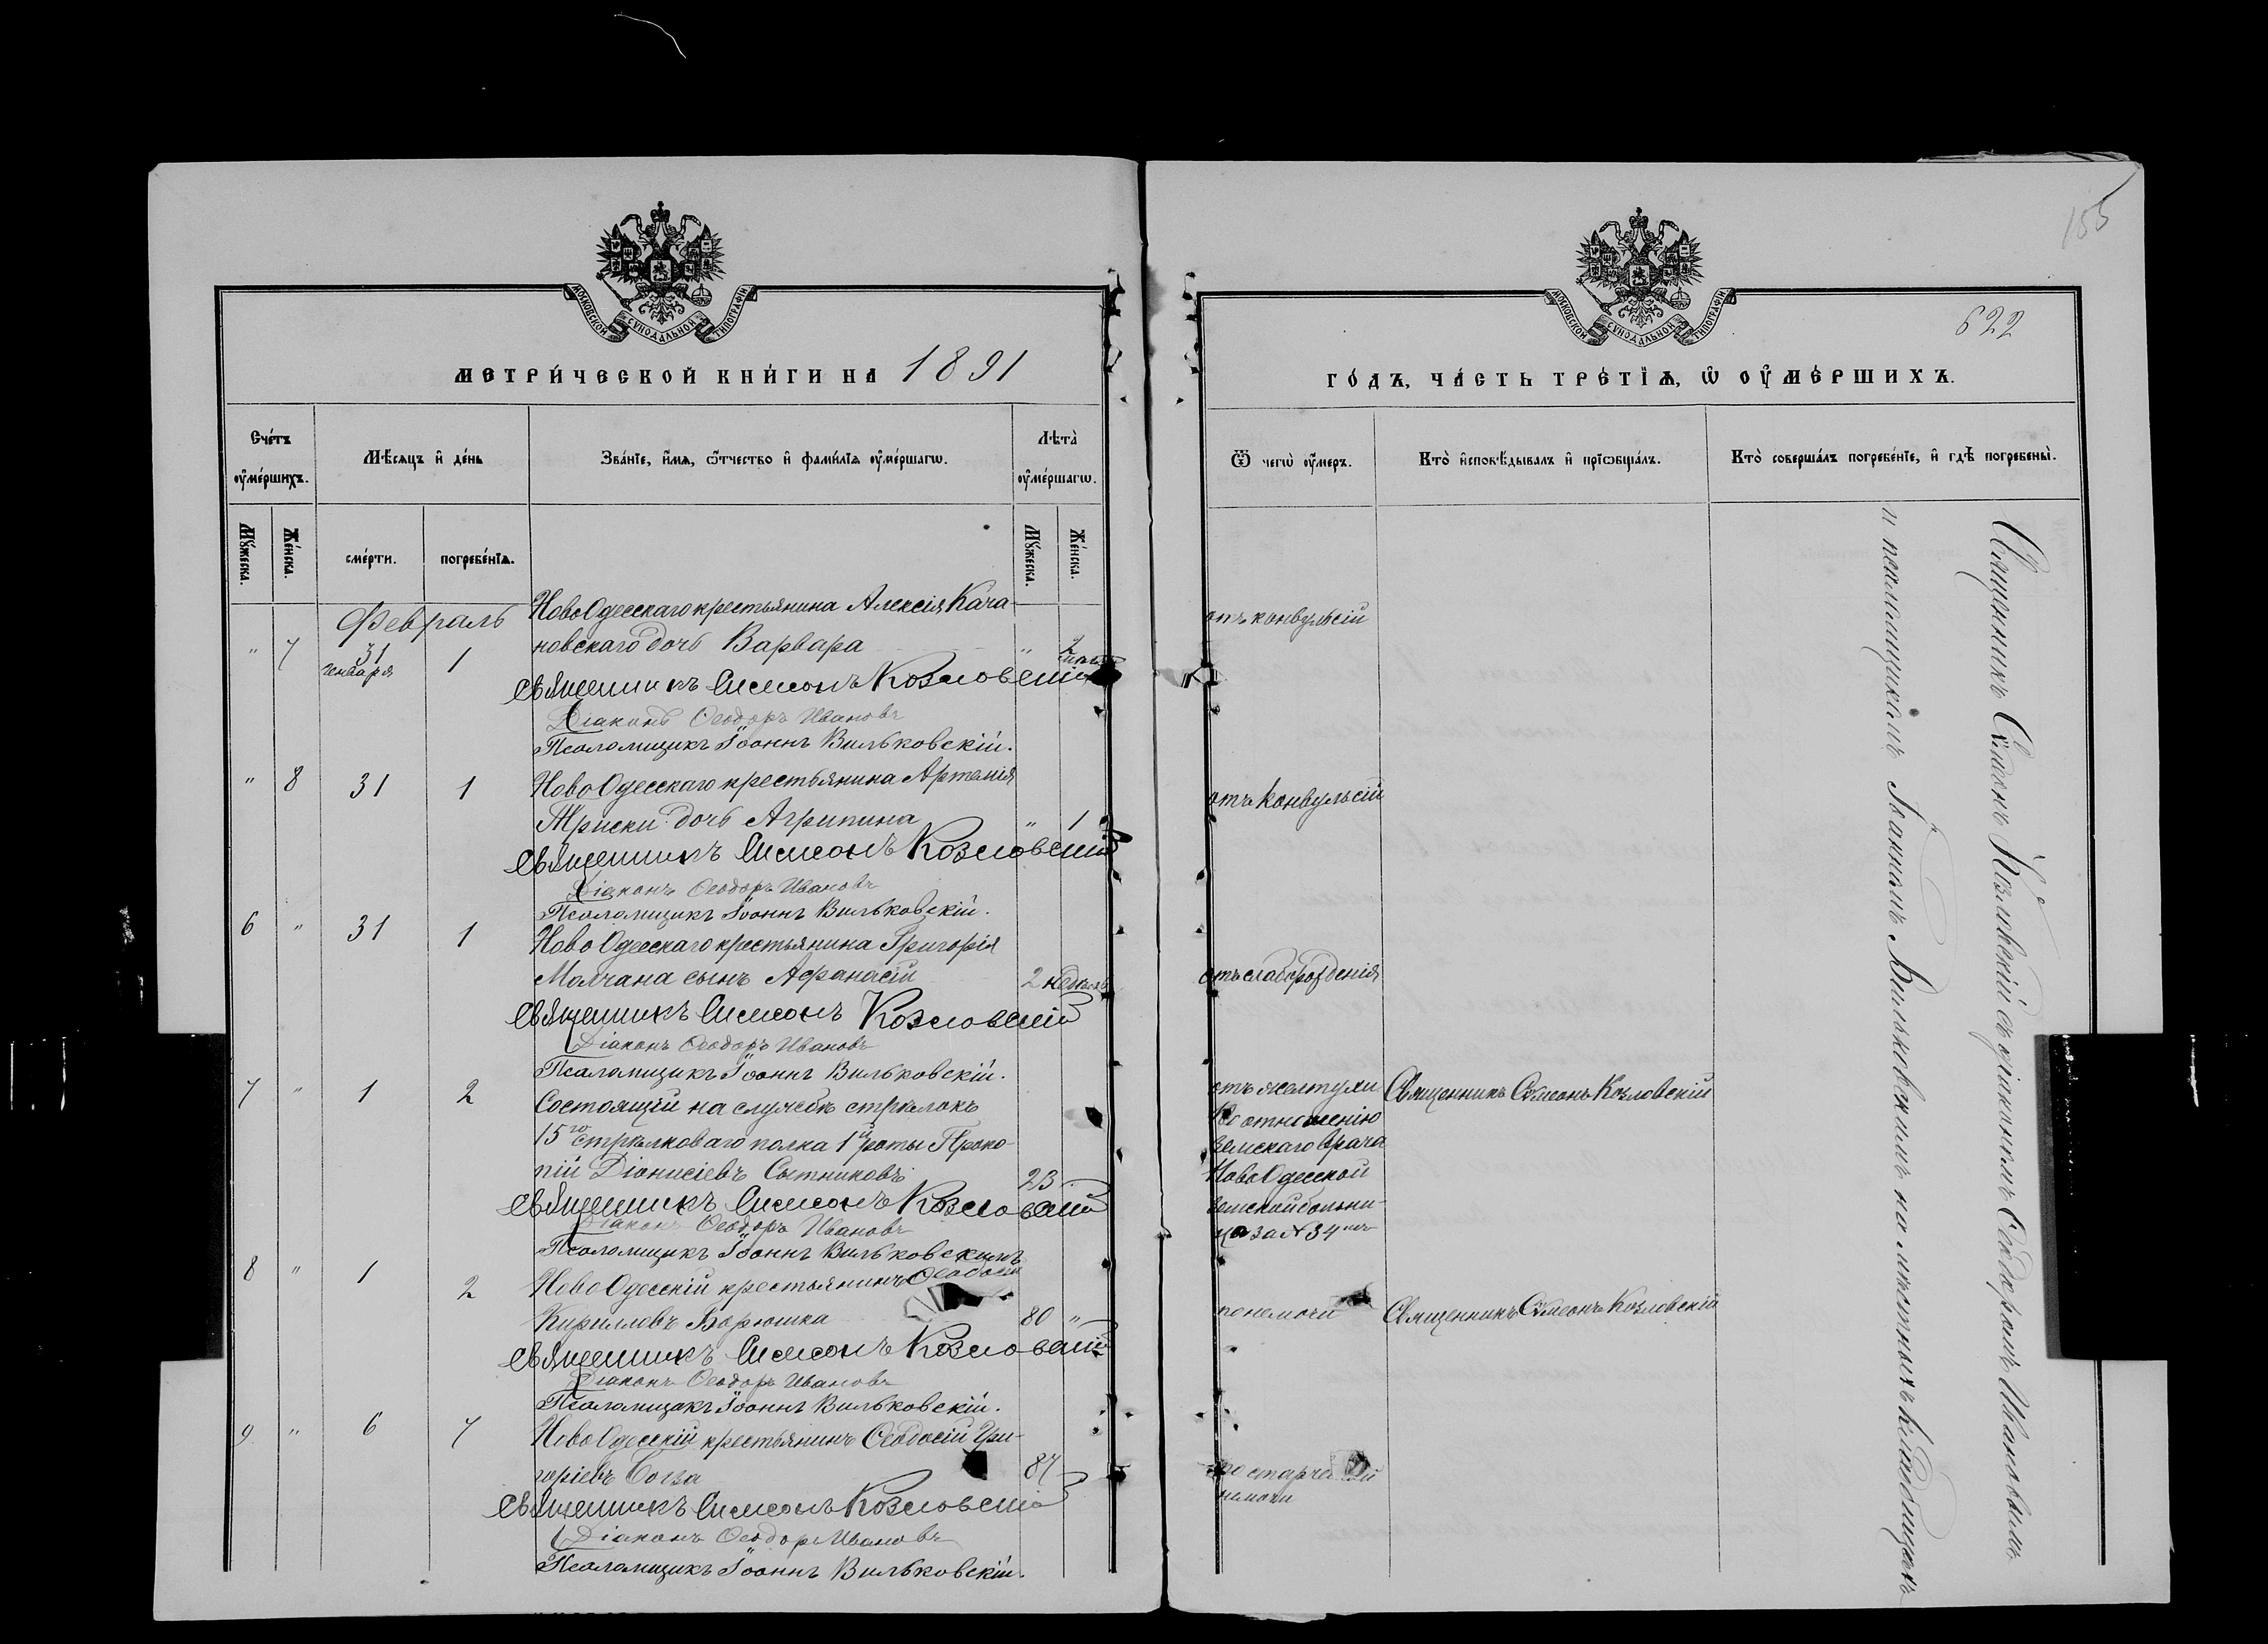 155
МОСКОВСКОЙ СѴНОДАЛЬНОЙ ТИПОГРАФІИ
МЕТРИ́ЧЕСКОЙ КНИ́ГИ НА 1891
Счéтъ ᲂу҆мéршихъ.
Мѣ́сяцъ и҆ дéнь
Звáнїе, и҆́мѧ, ѻ҆́тчество и҆ фами́лїѧ ᲂу҆мéршагѡ.
Лѣтà ᲂу҆мéршагѡ.
Мꙋ́жеска.
Жéнска.
смéрти.
погребéнїѧ.
Мꙋ́жеска.
Жéнска.
Февраль
НовоОдесскаго крестьянина Алексія Кача-
" 7 31 Января 1 новскаго дочь Варвара " 2
Священникъ Симеонъ Козловскій
Діаконъ Ѳеодоръ Ивановъ
Псаломщикъ Іоаннъ Вильковскій.
" 8 31 1 Ново Одесскаго крестьянина Артемія
Триски дочь Агрипина " 1
Священникъ Симеонъ Козловскій
Діаконъ Ѳеодоръ Ивановъ
Псаломщикъ Іоаннъ Вильковскій.
6 " 31 1 Ново Одесскаго крестьянина Григорія
Молчана сынъ Афанасій 2 недѣль
Священникъ Симеонъ Козловскій
Діаконъ Ѳеодоръ Ивановъ
Псаломщикъ Іоаннъ Вильковскій.
7 " 1 2 Состоящій на службѣ стрѣлокъ
15го стрѣлковаго полка 1й роты Проко-
пій Діонисіевъ Сытниковъ 23
Священникъ Симеонъ Козловскій
Діаконъ Ѳеодоръ Ивановъ
Псаломщикъ Іоаннъ Вильковскимъ
8 " 1 2 Ново Одесскій крестьянинъ Ѳеодосій
Кирилловъ Борюшка 80 "
Священникъ Симеонъ Козловскій
Діаконъ Ѳеодоръ Ивановъ
Псаломщикъ Іоаннъ Вильковскій.
9 " 6 7 Ново Одесскій крестьянинъ Ѳеодосій Гри-
горіевъ 87
Священникъ Симеонъ Козловскій
Діаконъ Ѳеодоръ Ивановъ
Псаломщикъ Іоаннъ Вильковскій.
МОСКОВСКОЙ СѴНОДАЛЬНОЙ ТИПОГРАФІИ
622
ГÓДЪ, ЧÁСТЬ ТРÉТЇѦ, Ѡ҆ ОУ҆МÉРШИХЪ.
Ѿ чегѡ̀ ᲂу҆́меръ.
Ктò и҆сповѣ́дывалъ и҆ прїѡбщáлъ.
Ктò совершáлъ погребéнїе, и҆ гдѣ̀ погребены̀.
отъ конвульсій
отъ конвульсій
отъ слаборожденія
отъ желтухи Священникъ Сѵмеонъ Козловскій
по отношенію
земскаго врача
Ново Одесской
земской больни-
цы за №34
по немочи Священникъ Сѵмеонъ Козловскій
по старческой
немочи
Священникъ Сѵмеонъ Козловскій съ діакономъ Ѳеодоромъ Ивановымъ
и псаломщикомъ Іоанномъ Вильковскимъ на мѣстныхъ кладбищахъ